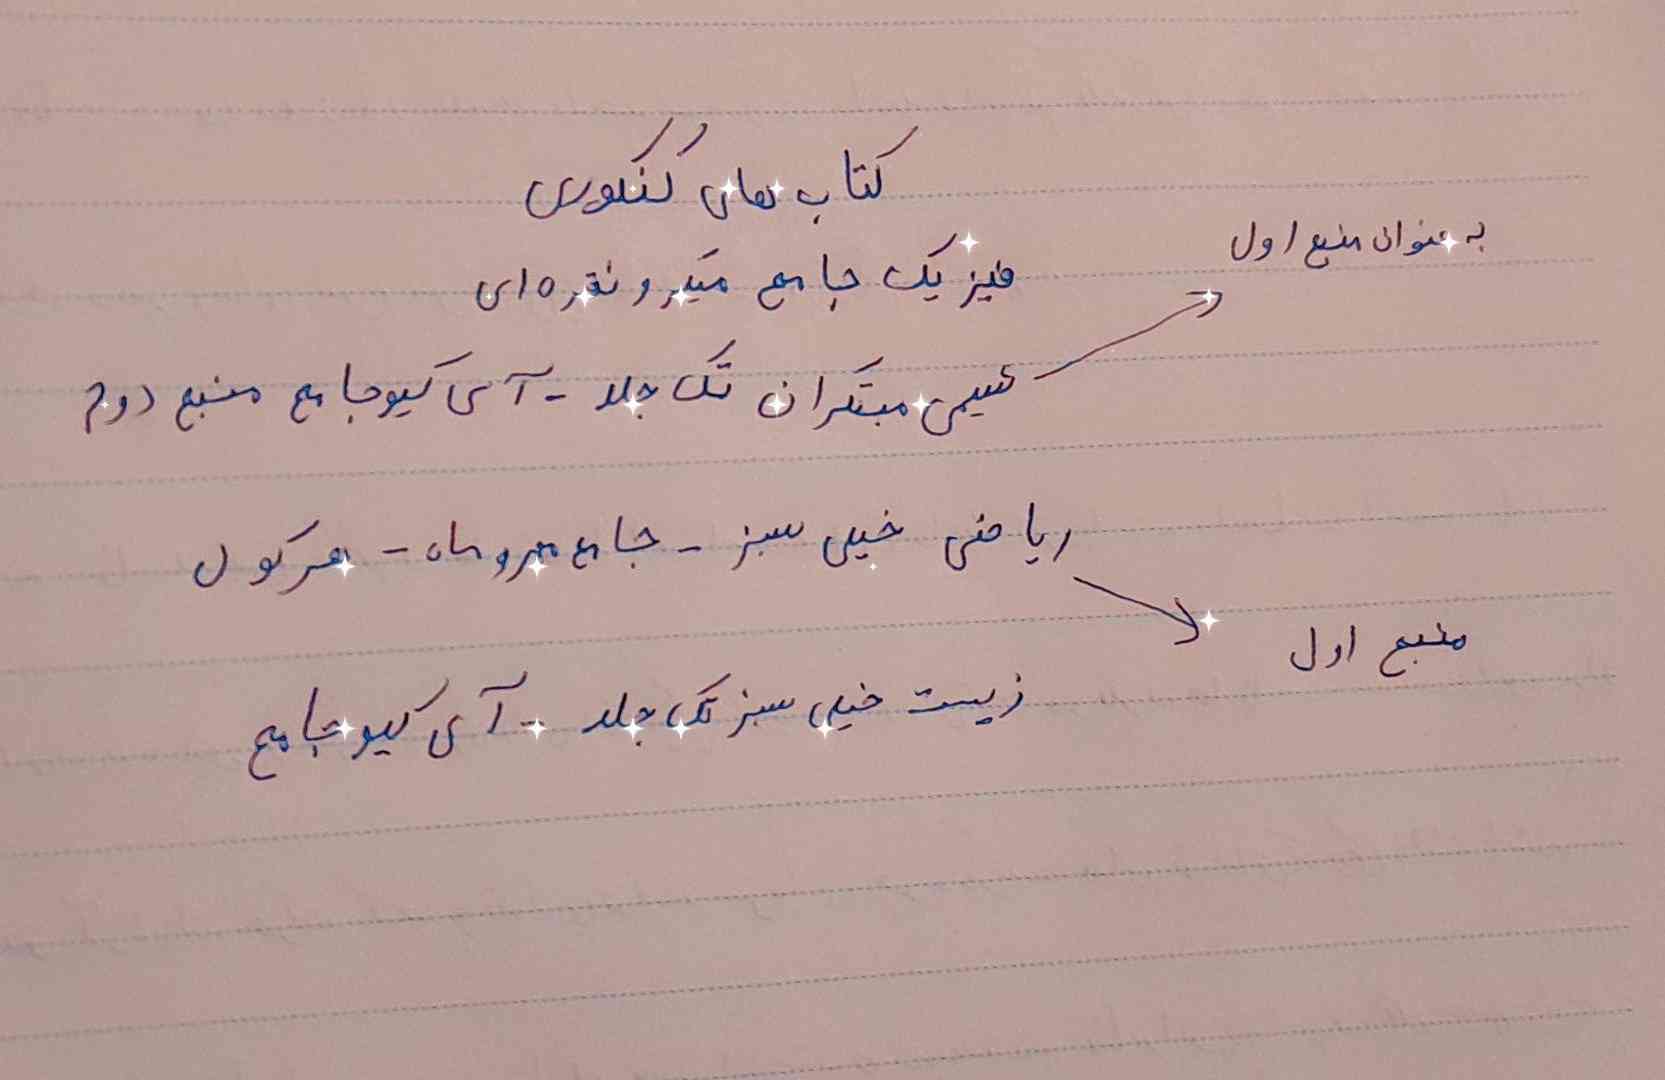 کتاب های کنکوری
به عنوان منبع اول
فیزیک جامع میکرو نقره ای
شیمی مبتکران تک جلد - آی کیو جامع منبع دوم
ریاضی خیلی سبز - جامع مهروماه - هرکول
منبع اول
زیست خیلی سبز تک جلد - آی کیو جامع